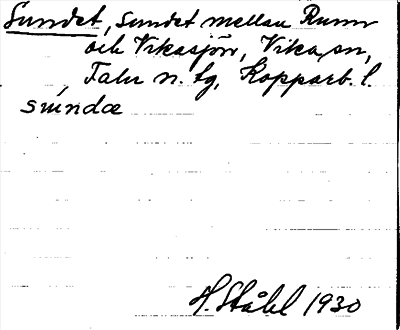 Sundet, sundet mellan Runn
och Vikasjön, Vika sn,
Falu n. tg, Kopparb. l.
sùndæ
H. Ståhl 1930